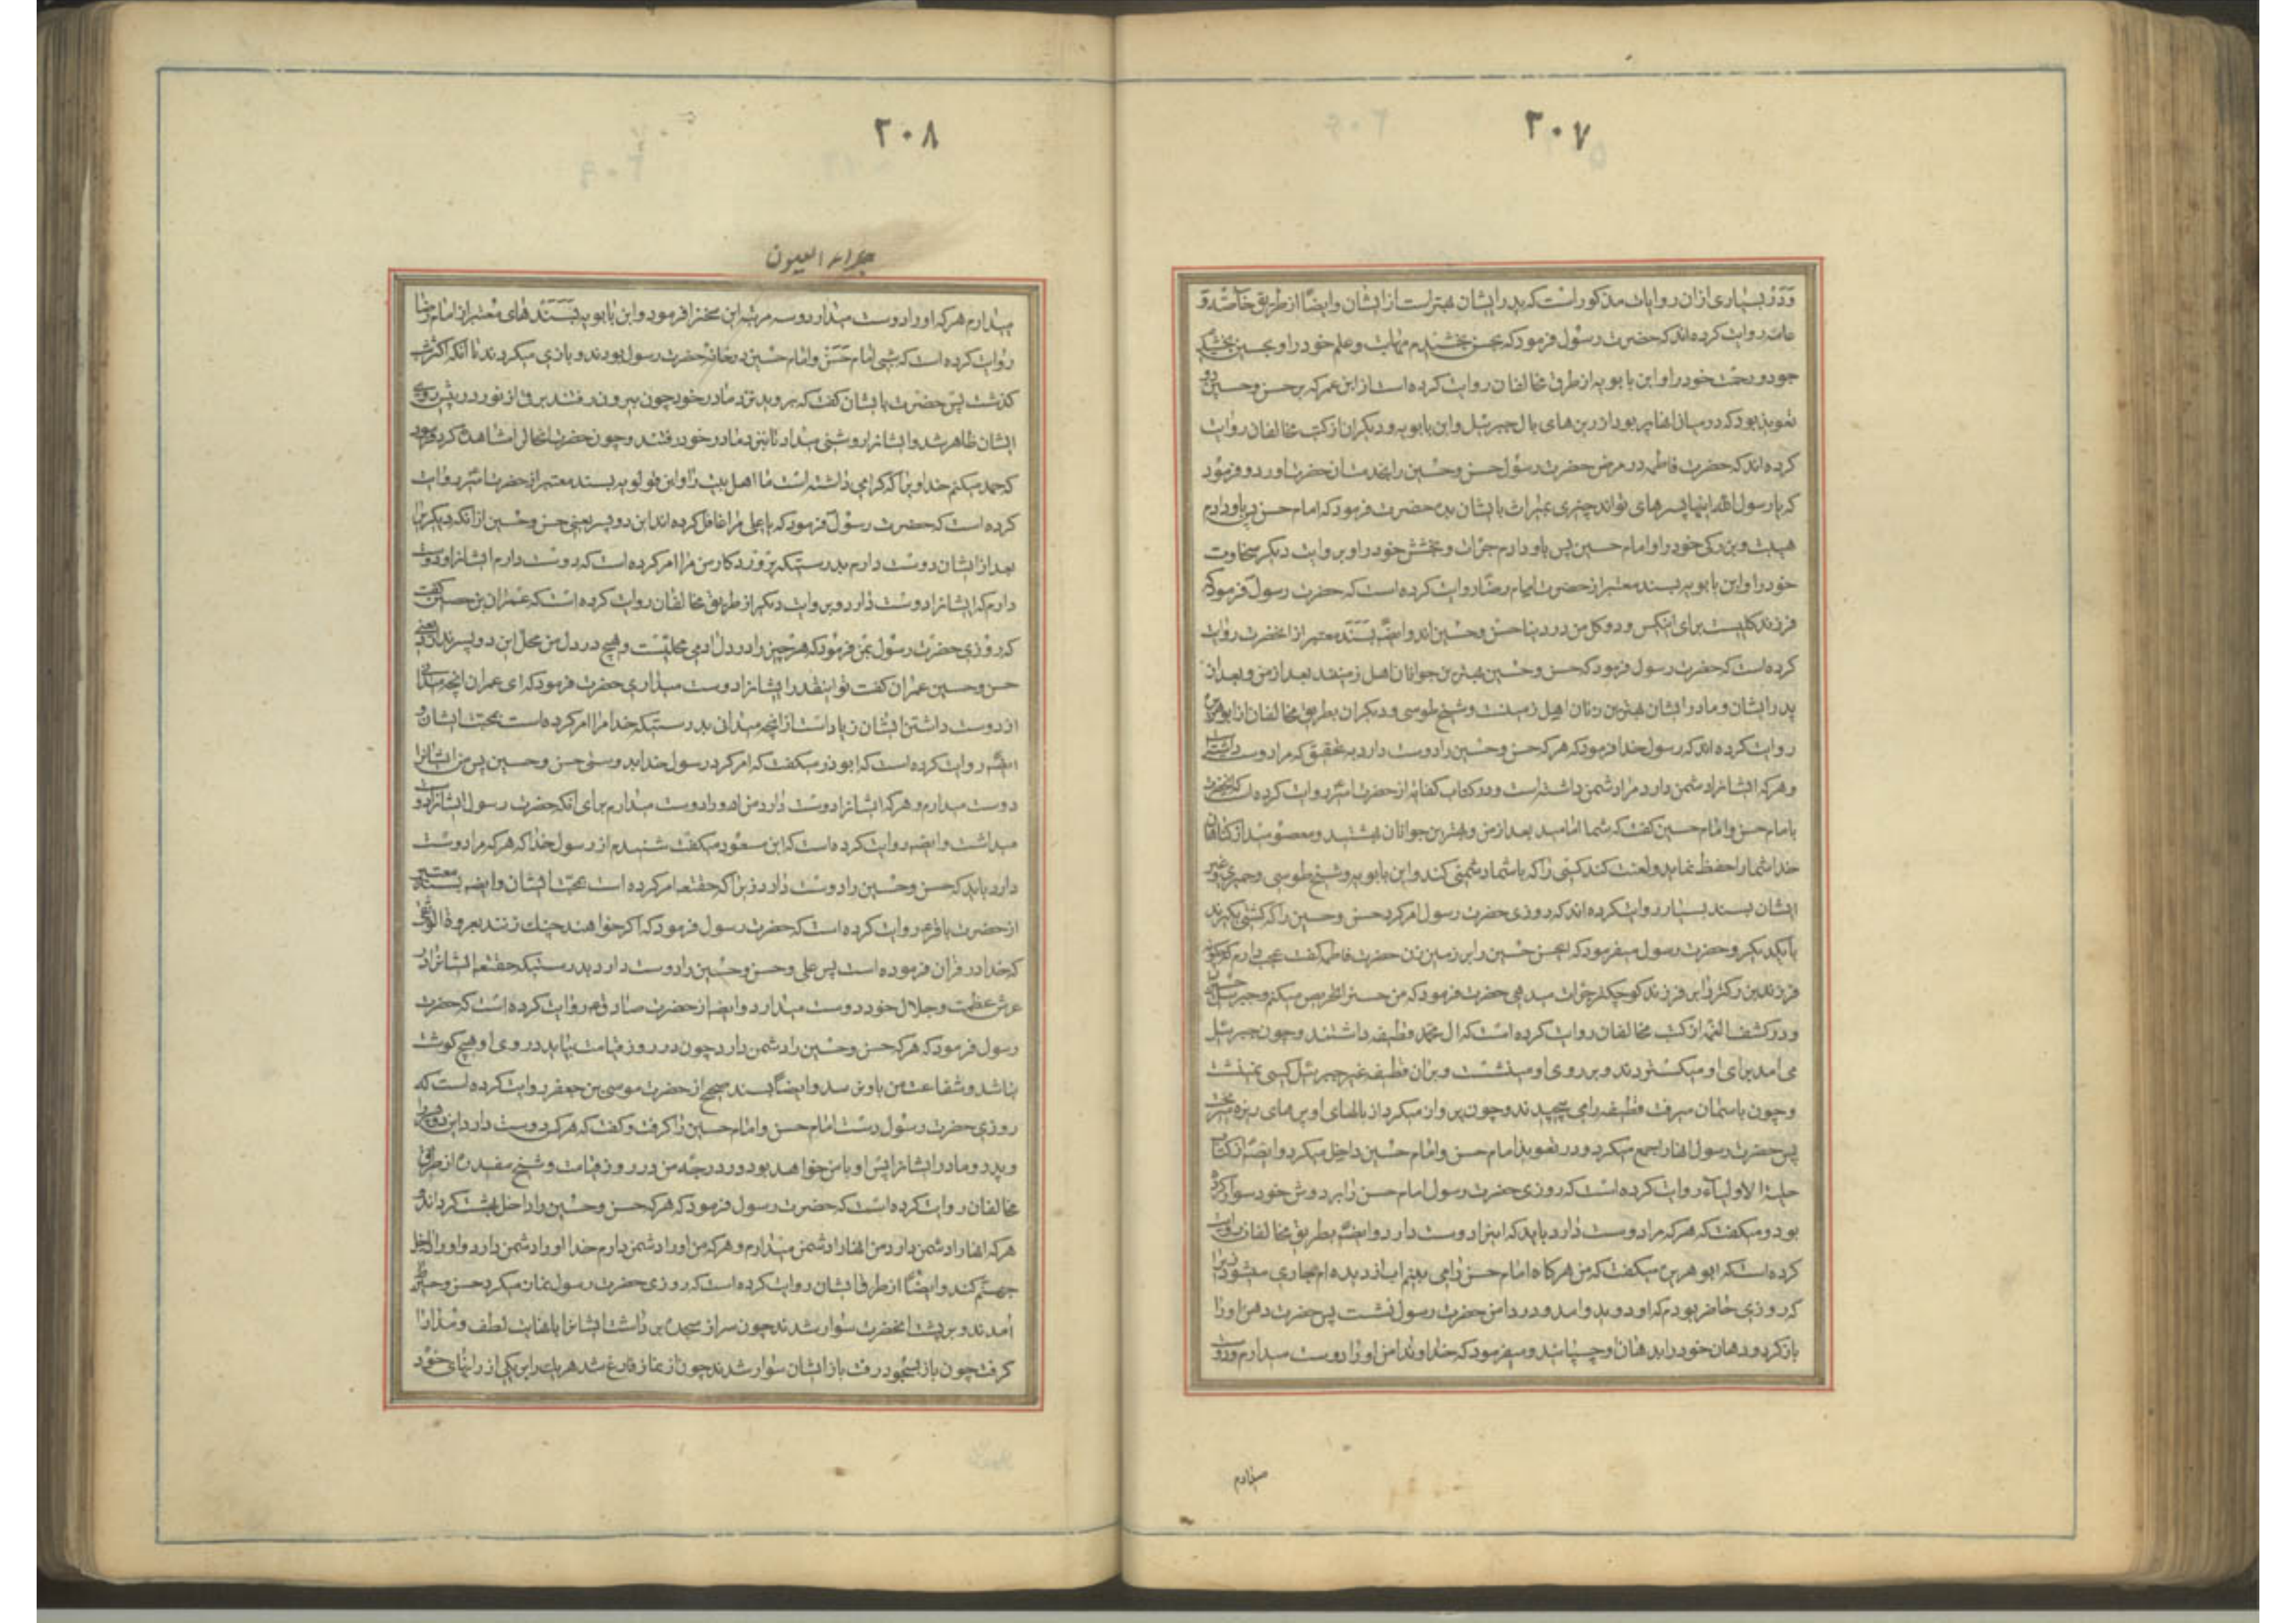 ۲۰۷
و در بسیاری ازان روایات مذکور است که پدر ایشان بهتر است از ایشان و ایضاً از طریق خاصه و
عامه روایت کرده اند که حضرت رسول فرمود که بحسن بخشیدم مهابت و علم خود را و بحسین بخشیدم
جود و رحمت خود را و ابن بابویه از طرق مخالفان روایت کرده است از ابن عمر که بر حسن و حسین دو
تعویذ بود که در میان انها پر بود از ریزه های بال جبرئیل و ابن بابویه و دیکران از کتب مخالفان روایت
کرده اند که حضرت فاطمه در مرض حضرت رسول حسن و حسین را بخدمت انحضرت اورد و فرمود
که یا رسول الله اینها پسرهای تواند چیزی بمیراث بایشان بده حضرت فرمود که امام حسن پس باو دادم
هیبت و بزرکی خود را و امام حسین پس باو دادم جرات و بخشش خود را و بروایت دیکر سخاوت
خود را و ابن بابویه بسند معتبر از حضرت امام رضا روایت کرده است که حضرت رسول فرمود که
فرزند کلیست برای اینکس و دو کل من در دنیا حسن و حسین اند و ایضاً بسند معتبر از انحضرت روایت
کرده است که حضرت رسول فرمود که حسن و حسین بهترین جوانان اهل زمینند بعد از من و بعد از
پدر ایشان و مادر ایشان بهترین زنان اهل زمینست و شیخ طوسی و دیکران بطریق مخالفان از ابو هریره
روایت کرده اند که رسول خدا فرمود که هر که حسن و حسین را دوست دارد به تحقیق که مرا دوست داشته است
و هر که ایشانرا دشمن دارد مرا دشمن داشته است و در کتاب کفایه از حضرت امیر روایت کرده است که حضرت
با امام حسن و امام حسین کفت که شما امامید بعد از من و بهترین جوانان بهشتید و معصومید از کناهان
خدا شما را حفظ نماید و لعنت کند کسی را که با شما دشمنی کند و ابن بابویه و شیخ طوسی و حمیری و غیر
ایشان بسند بسیار روایت کرده اند که روزی حضرت رسول امر کرد حسن و حسین را که کشتی بکیرند
با یکدیکر و حضرت رسول میفرمود که ای حسن حسین را بر زمین زن حضرت فاطمه کفت عجب دارم که
فرزند بزرکتر را بر فرزند کوچکتر جرات میدهی حضرت فرمود که من حسن را تحریص میکنم و جبرئیل حسین را
و در کشف الغمه از کتب مخالفان روایت کرده است که ال محمد قطیفه داشتند و چون جبرئیل
می امد برای او میکستردند و بر روی او مینشست و بران قطیفه غیر جبرئیل کسی نمینشست
و چون باسمان میرفت قطیفه را می پیچیدند و چون پرواز میکرد از بالهای او پرهای ریزه میریخت
پس حضرت رسول انها را جمع میکرد و در تعویذ امام حسن و امام حسین داخل میکرد و ایضاً از کتاب
حلیة الاولیاء روایت کرده است که روزی حضرت رسول امام حسن را بر دوش خود سوار کرده
بود و میکفت که هر که مرا دوست دارد باید که اینرا دوست دارد و ایضاً بطریق مخالفان روایت
کرده است که ابو هریره میکفت که من هرکاه امام حسن را می بینم اب از دیده ام جاری میشود زیرا
که روزی حاضر بودم که او دوید و امد و در دامن حضرت رسول نشست پس حضرت دهن او را
باز کرد و دهان خود را بدهان او چسپانید و میفرمود که خداوندا من او را دوست میدارم و دوست
میدارم
۲۰۸
جلاء العیون
میدارم هر که او را دوست میدارد و سه مرتبه این سخنرا فرمود و ابن بابویه بسندهای معتبر از امام رضا
روایت کرده است که شبی امام حسن و امام حسین در خانه حضرت رسول بودند و بازی میکردند تا انکه اکثر شب
کذشت پس حضرت بایشان کفت که بروید نزد مادر خود چون بیرون رفتند برقی از نور در پیش روی
ایشان ظاهر شد و ایشانرا روشنی میداد تا بنزد مادر خود رفتند و چون حضرت انحال را مشاهده کرد فرمود
که حمد میکنم خداوندیرا که کرامی داشته است ما اهل بیت را و ابن قولویه بسند معتبر از حضرت امیر روایت
کرده است که حضرت رسول فرمود که یا علی مرا غافل کرده اند این دو پسر یعنی حسن و حسین از انکه دیکریرا
بعد از ایشان دوست دارم بدرستیکه پروردکار من مرا امر کرده است که دوست دارم ایشانرا و دوست
دارم که ایشانرا دوست دارد و بروایت دیکر از طریق مخالفان روایت کرده است که عمران بن حصین کفت
که روزی حضرت رسول بمن فرمود که هر چیز را در دل ادمی محلیست و هیچ در دل من محل این دو پسر ندارد یعنی
حسن و حسین عمران کفت تو اینقدر ایشانرا دوست میداری حضرت فرمود که ای عمران انچه میدانی
از دوست داشتن ایشان زیاد است از انچه میدانی بدرستیکه خدا مرا امر کرده است بمحبت ایشان و
ایضاً روایت کرده است که ابوذر میکفت که امر کرد رسول خدا بدوستی حسن و حسین پس من ایشانرا
دوست میدارم و هر که ایشانرا دوست دارد من او را دوست میدارم برای انکه حضرت رسول ایشانرا دوست
میداشت و ایضاً روایت کرده است که ابن مسعود میکفت شنیدم از رسول خدا که هر که مرا دوست
دارد باید که حسن و حسین را دوست دارد زیرا که حقتعالی امر کرده است بمحبت ایشان و ایضاً بسند معتبر
از حضرت باقر روایت کرده است که حضرت رسول فرمود که اکر خواهند چنك زنند بعروة الوثقی
که خدا در قران فرموده است پس علی و حسن و حسین را دوست دارید بدرستیکه حقتعالی ایشانرا در
عرش عظمت و جلال خود دوست میدارد و ایضاً از حضرت صادق روایت کرده است که حضرت
رسول فرمود که هر که حسن و حسین را دشمن دارد چون در روز قیامت بیاید در روی او هیچ کوشت
نباشد و شفاعت من باو نرسد و ایضاً بسند صحیح از حضرت موسی بن جعفر روایت کرده است که
روزی حضرت رسول دست امام حسن و امام حسین را کرفت و کفت که هر که دوست دارد این دو پسر را
و پدر و مادر ایشانرا پس او با من خواهد بود در درجه من در روز قیامت و شیخ مفید از طرق
مخالفان روایت کرده است که حضرت رسول فرمود که هر که حسن و حسین را داخل بهشت کرداند و
هر که انها را دشمن دارد من انها را دشمن میدارم و هر که من او را دشمن دارم خدا او را دشمن دارد و او را داخل
جهنم کند و ایضاً از طرق ایشان روایت کرده است که روزی حضرت رسول نماز میکرد حسن و حسین
امدند و بر پشت انحضرت سوار شدند چون سر از سجده برداشت ایشانرا با نهایت لطف و مدارا
کرفت چون باز بسجود رفت باز ایشان سوار شدند چون از نماز فارغ شد هر یك را بر یکی از رانهای خود